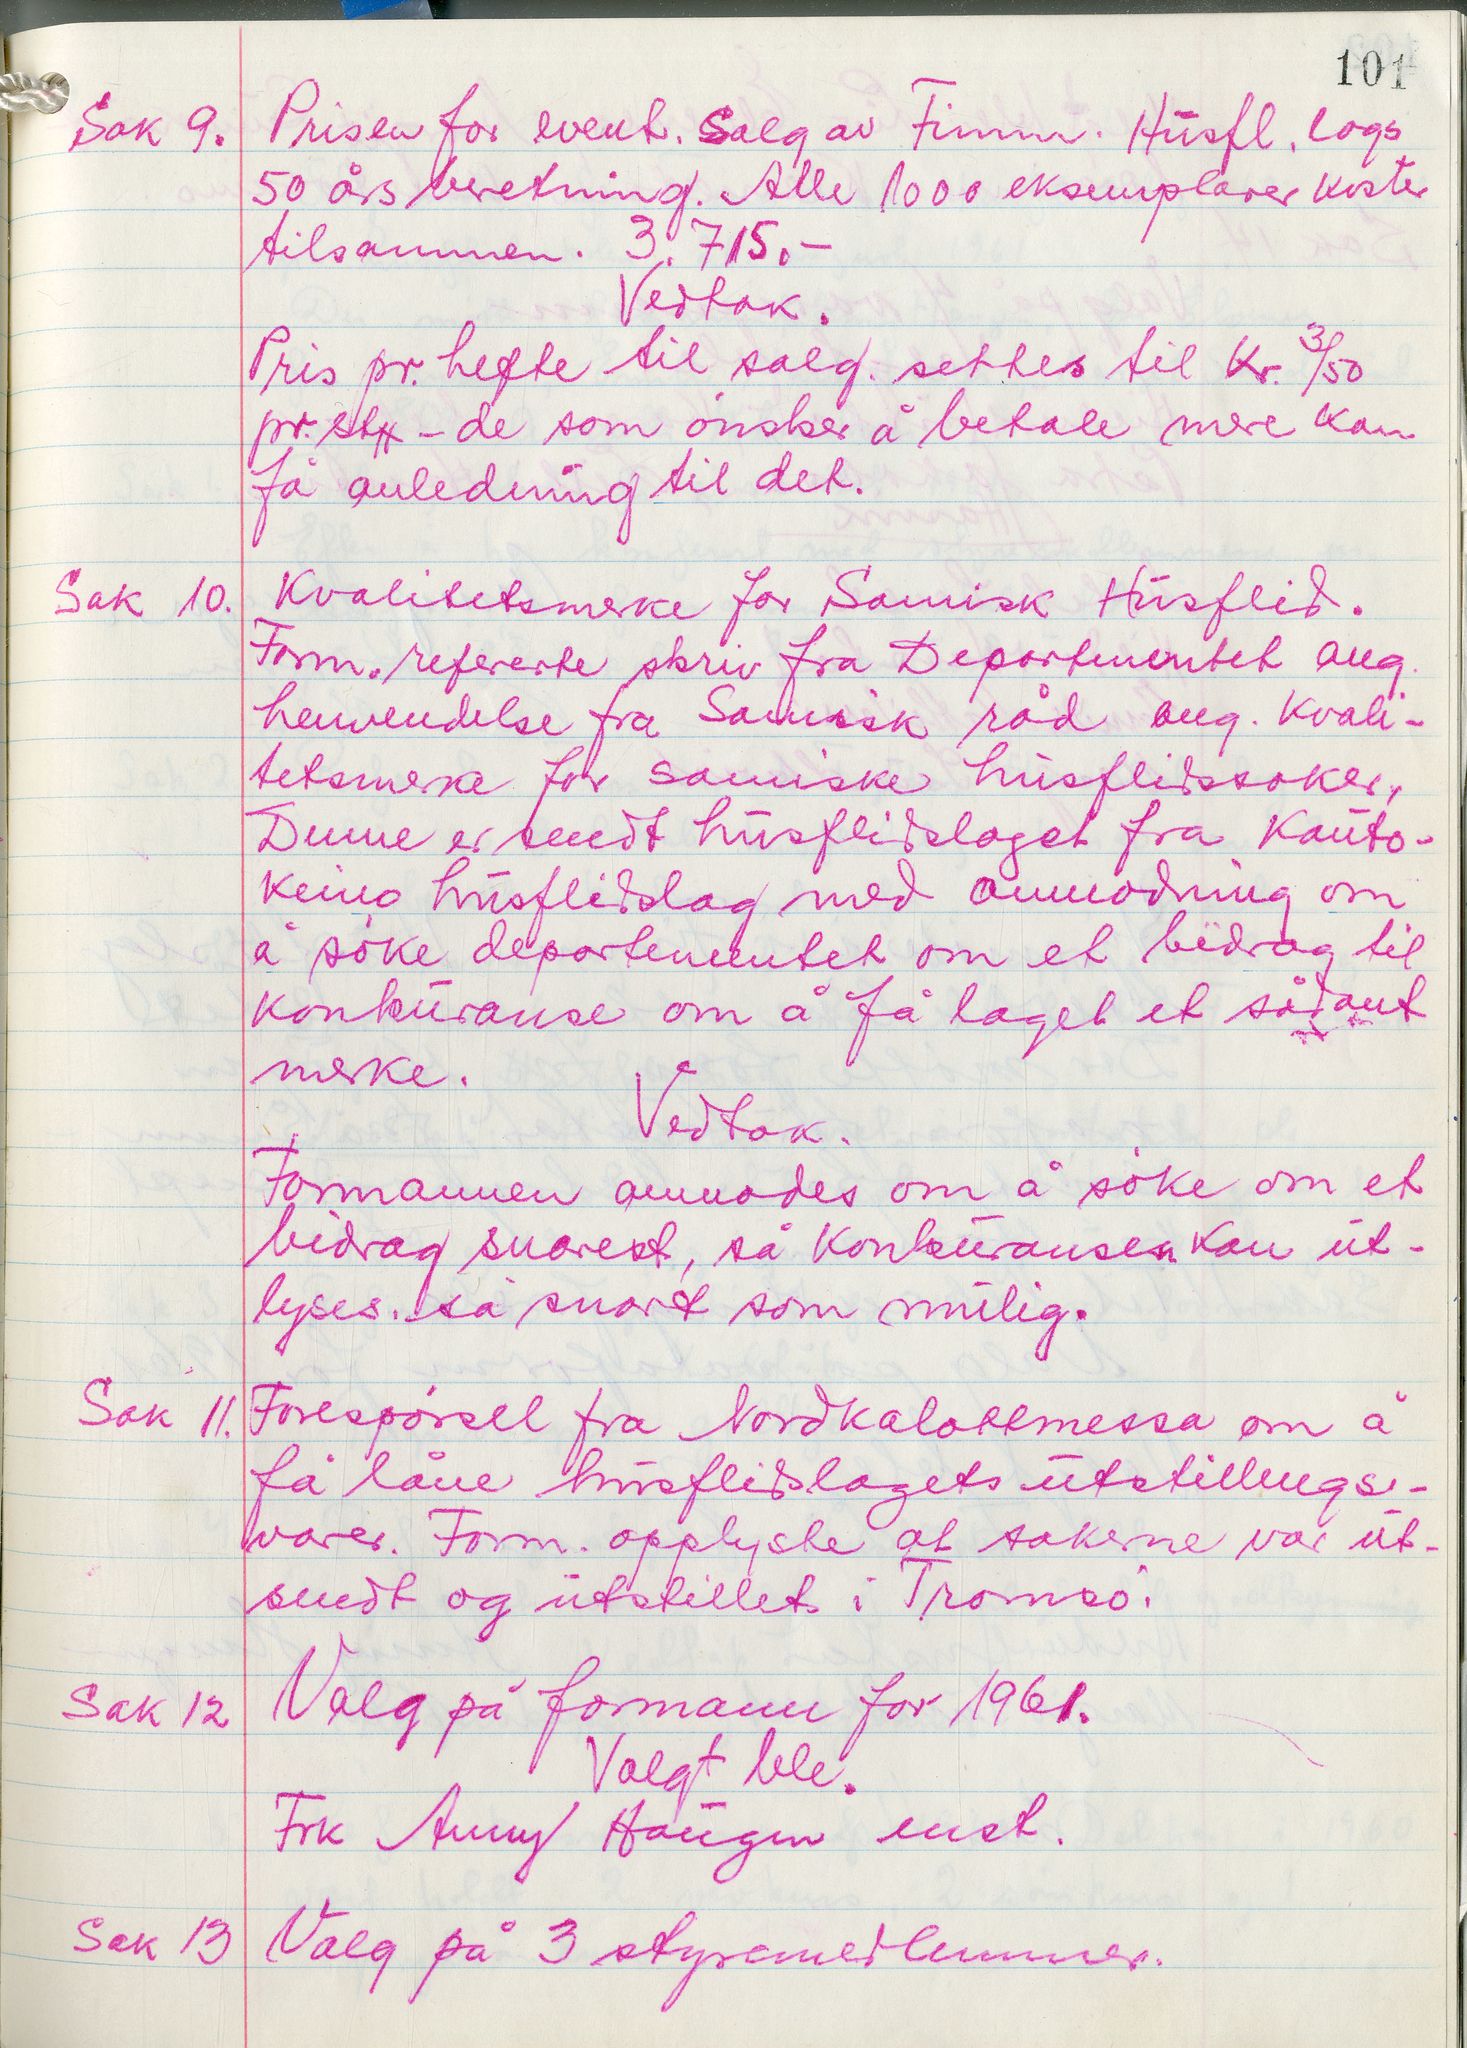 101
Sak 9. Prisen for event. Salg av Finnm. Husfl. lags
50 års beretning. Alle 1000 eksemplarer koster
tilsammen. 3.715.-
Vedtak.
Pris pr. hefte til salg. settes til Kr. 3/50
pr. stk - de som ønsker å betale mere kan
få anledning til det.
Sak 10. Kvalitetsmerke for Samisk Husflid.
Form. refererte skriv fra Departementet ang.
henvendelse fra Samisk råd ang. Kvali-
tetsmerke for samiske husflidssaker,
Denne er sendt husflidslaget fra Kauto-
keino husflidslag med anmodning om
å søke departementet om et bidrag til
konkuranse om å få laget et sådant
merke.
Vedtak.
Formannen anmodes om å søke om et
bidrag snarest, så Konkuransen kan ut-
lyses. så snart som mulig.
Sak 11. Forespørsel fra Nordkalottmessa om å
få låne husflidslagets utstillings-
varer. Form. opplyste at sakerne var ut-
sendt og utstillet i Tromsø.
Sak 12 Valg på formann for 1961.
Valgt ble.
Frk Anny Haugen enst.
Sak 13 Valg på 3 styremedlemmer.